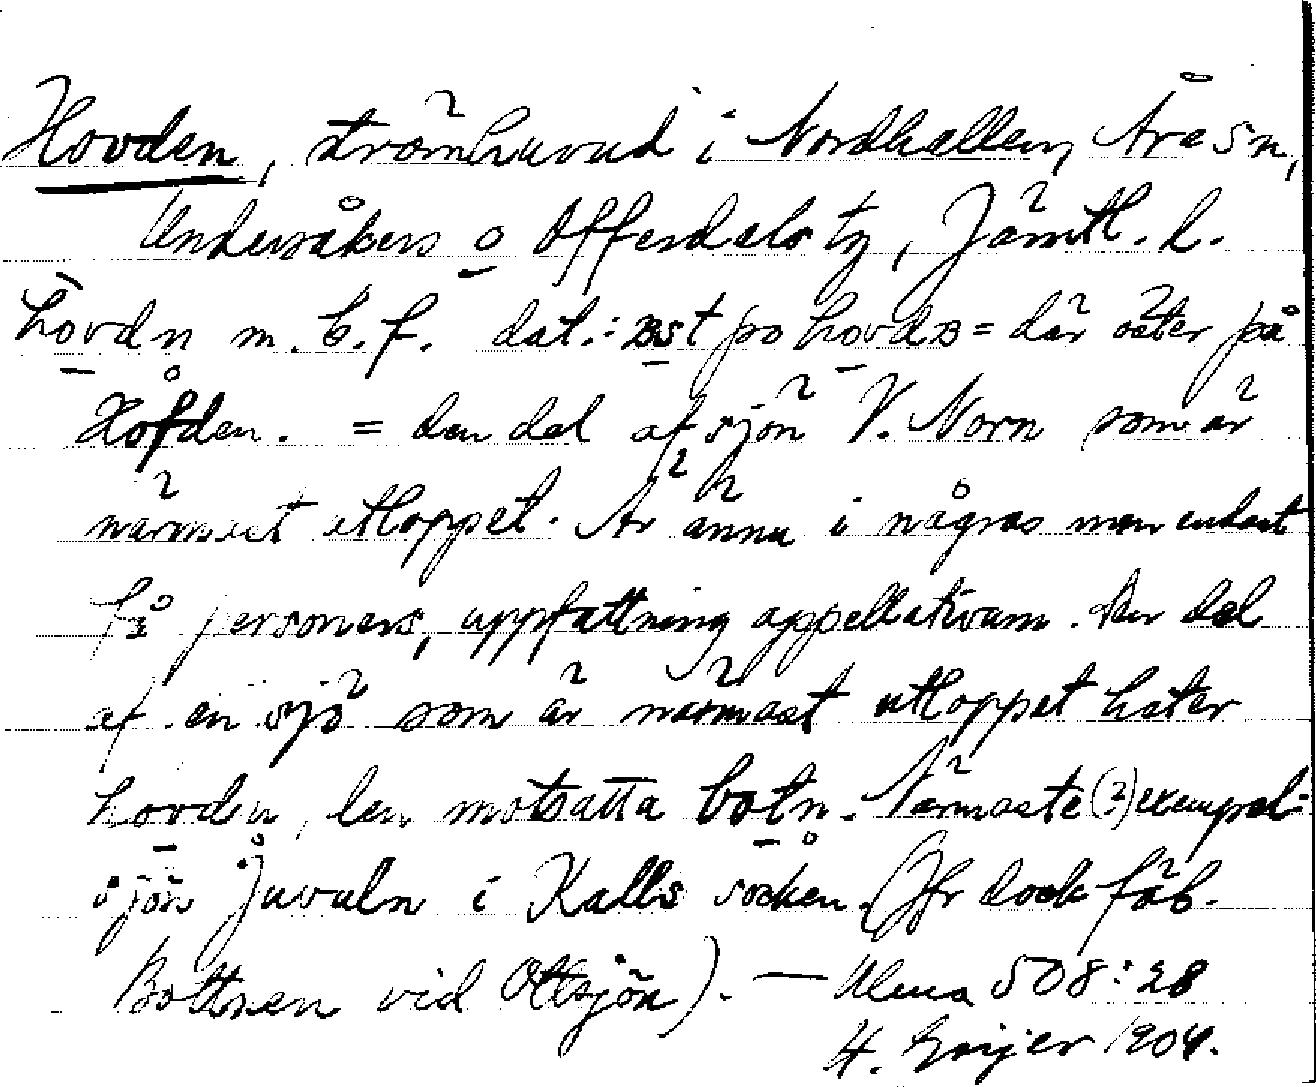 Hovden, strömhuvud i Nordhallen, Åre sn,
Undersåkers o Offerdals tg, Jämtl. l.
hovdn m. b. f. dat.: əst po hovdə = där öster på
Håfden. = den del af sjön V. Norn som är
närmast utloppet. Är ännu i några men endast
få personers, uppfattning appellativum. Den del
af en sjö som är närmast utloppet heter
hovden, den motsatta botn. Närmaste (?) exempel:
sjön Juvuln i Kalls socken. (Jfr dock fäb.
Bottnen vid Ottsjön). — Ulma 508:28
H. Geijer 1904.